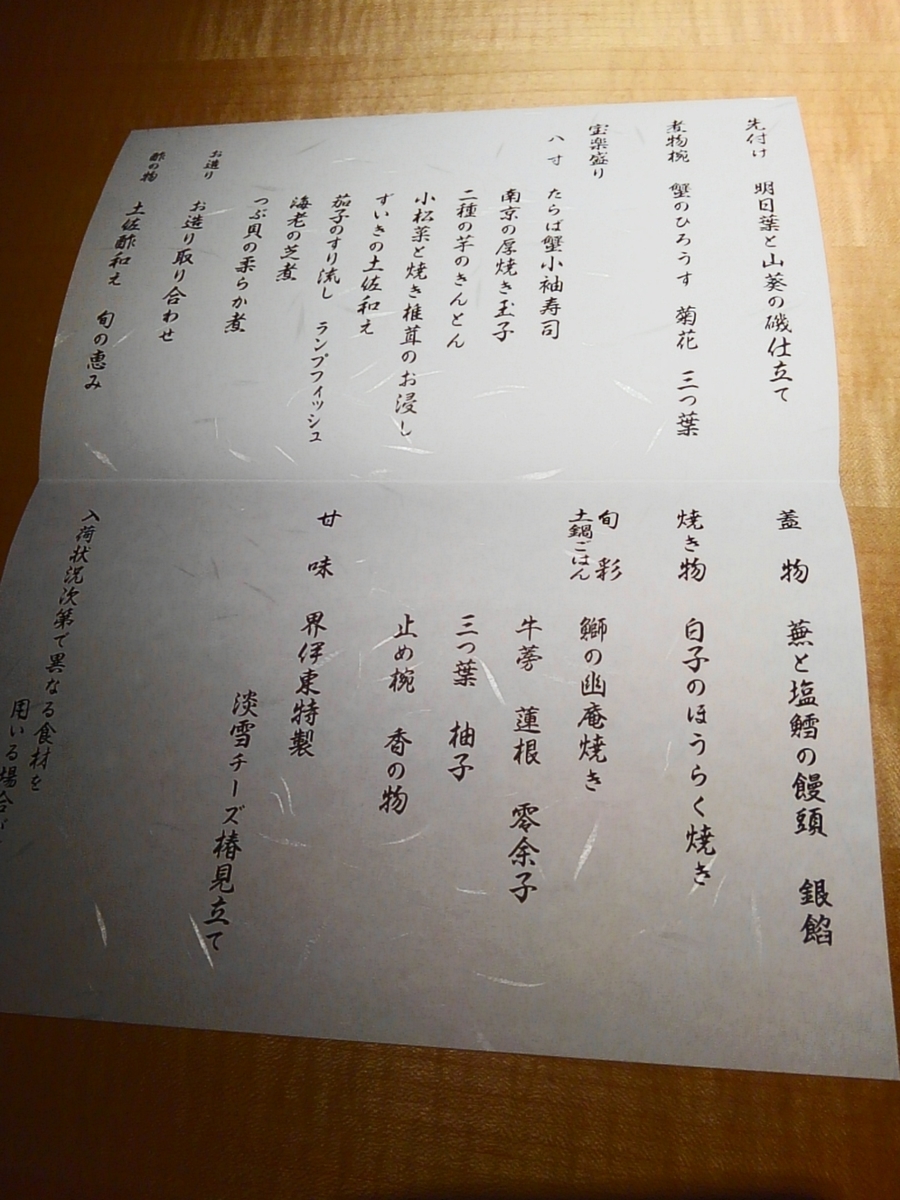 先付け 明日葉と山葵の磯仕立て
煮物椀 蟹のひろうす 菊花 三つ葉
宝楽盛り
八寸 たらば蟹小袖寿司
南京の厚焼き玉子
二種の芋のきんとん
小松菜と焼き椎茸のお浸し
ずいきの土佐和え
茄子のすり流し ランプフィッシュ
海老の芝煮
つぶ貝の柔らか煮
お造り お造り取り合わせ
酢の物 土佐酢和え 旬の恵み
蓋物 蕪と塩鱈の饅頭 銀餡
焼き物 白子のほうらく焼き
旬彩
土鍋ごはん 鰤の幽庵焼き
牛蒡 蓮根 零余子
三つ葉 柚子
止め椀 香の物
甘味 界伊東特製
淡雪チーズ椿見立て
入荷状況次第で異なる食材を
用いる場合が